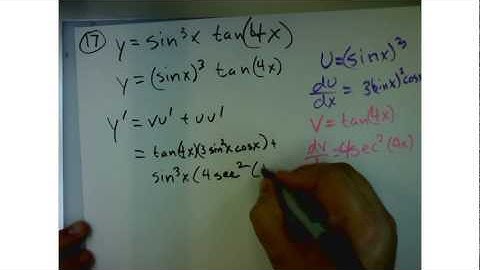 17
y = sin³x tan(4x)
y = (sinx)³ tan(4x)
y' = vu' + uv'
= tan(4x)(3sin²x cosx) +
sin³x(4sec²(
U = (sinx)³
du/dx = 3(sinx)² cosx
V = tan(4x)
dv/ 4sec²(4x)